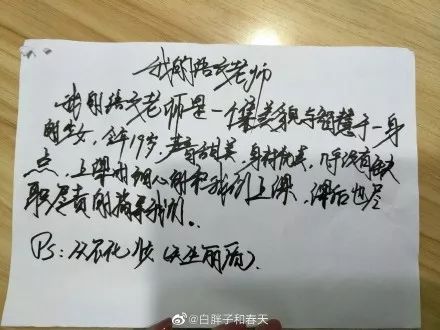 我的语文老师
我的语文老师是一位集美貌与智慧于一身
的少女,今年19岁,声音甜美,身材完美,几乎没有缺
点,上课时细心的和我们上课,课后也尽
职尽责的辅导我们。
PS:从不化妆(天生丽质)
@白胖子和春天